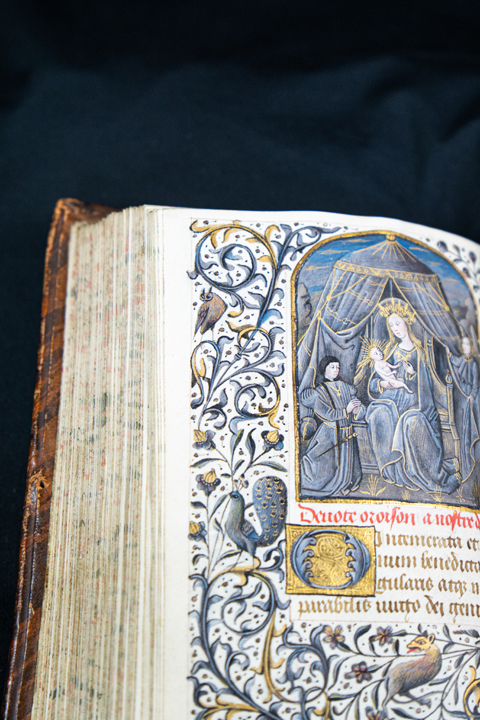 Deuote oroison a nostre d
O Intemerata et
num benedicta
gularis atqꝫ
parabilis uirgo dei geni